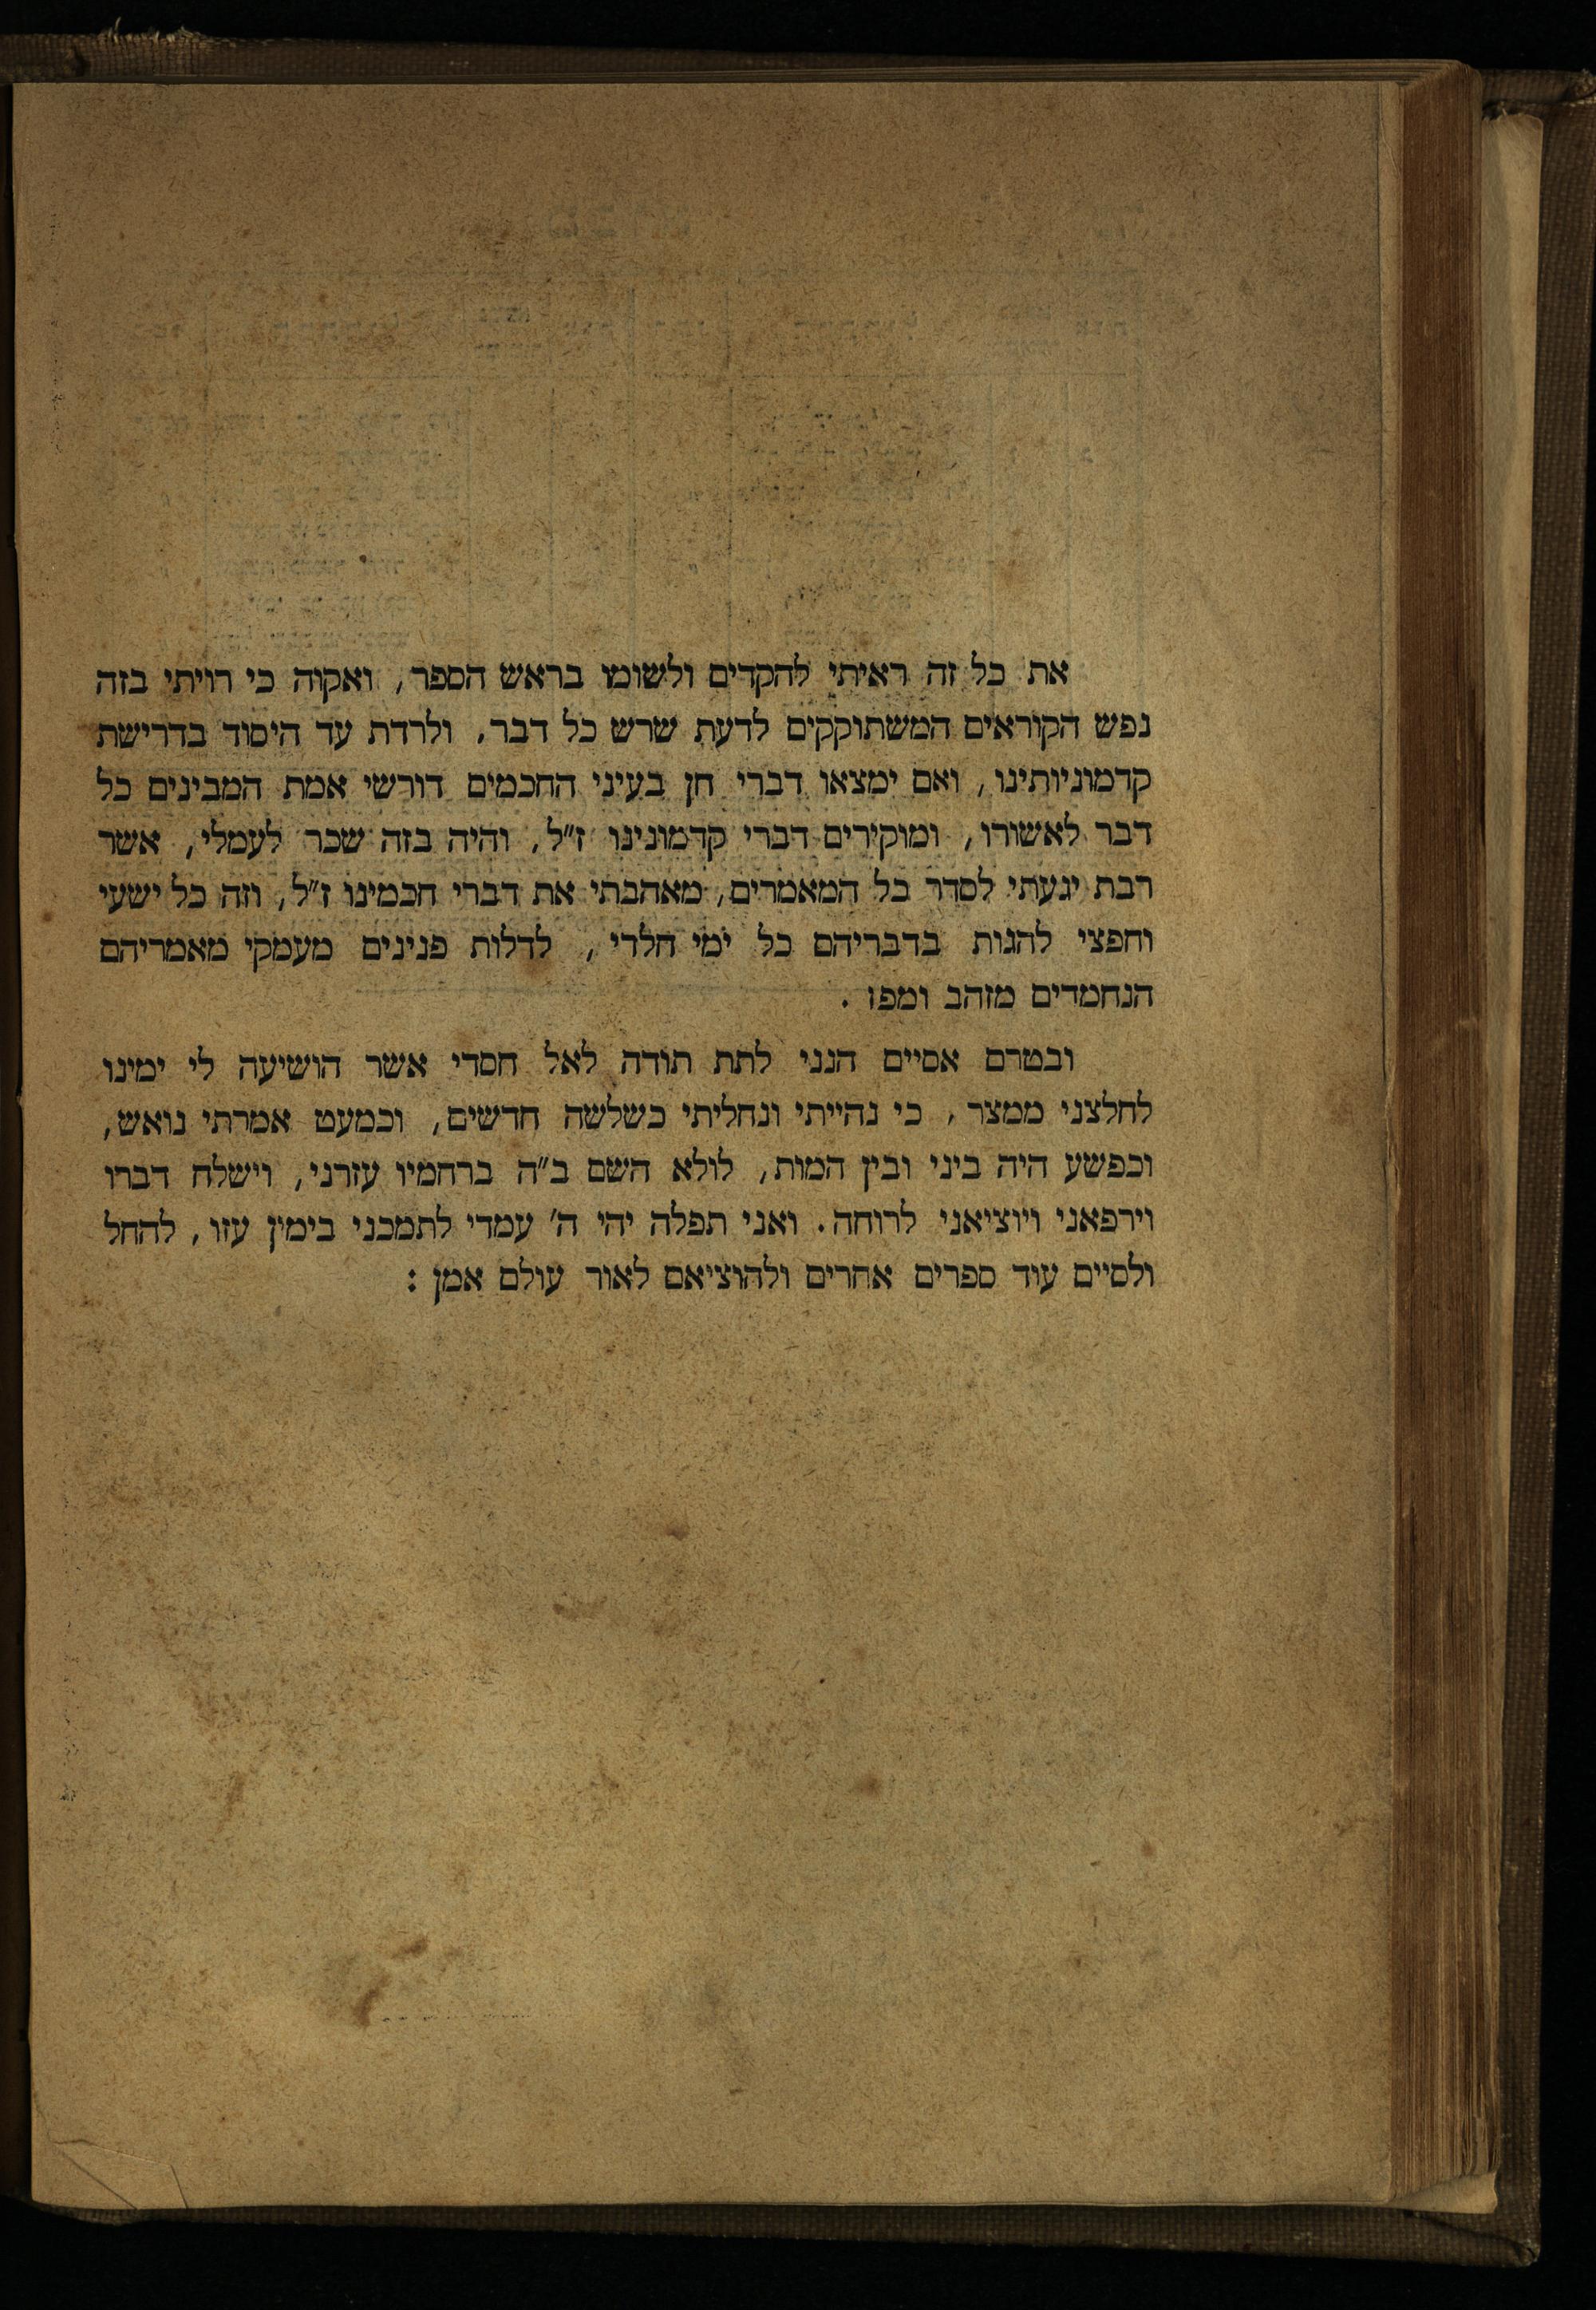 את כל זה ראיתי להקדים ולשומו בראש הספר, ואקוה כי רויתי בזה
נפש הקוראים המשתוקקים לדעת שרש כל דבר, ולרדת עד היסוד בדרישת
קדמוניותינו, ואם ימצאו דברי חן בעיני החכמים דורשי אמת המבינים כל
דבר לאשורו, ומוקירים דברי קדמונינו ז״ל, והיה בזה שכר לעמלי, אשר
רבת יגעתי לסדר כל המאמרים, מאהבתי את דברי חכמינו ז״ל, וזה כל ישעי
וחפצי להגות בדבריהם כל ימי חלדי, לדלות פנינים מעמקי מאמריהם
הנחמדים מזהב ומפז.
ובטרם אסיים הנני לתת תודה לאל חסדי אשר הושיעה לי ימינו
לחלצני ממצר, כי נהייתי ונחליתי כשלשה חדשים, וכמעט אמרתי נואש,
וכפשע היה ביני ובין המות, לולא השם ב״ה ברחמיו עזרני, וישלח דברו
וירפאני ויוציאני לרוחה. ואני תפלה יהי ה׳ עמדי לתמכני בימין עזו, להחל
ולסיים עוד ספרים אחרים ולהוציאם לאור עולם אמן: